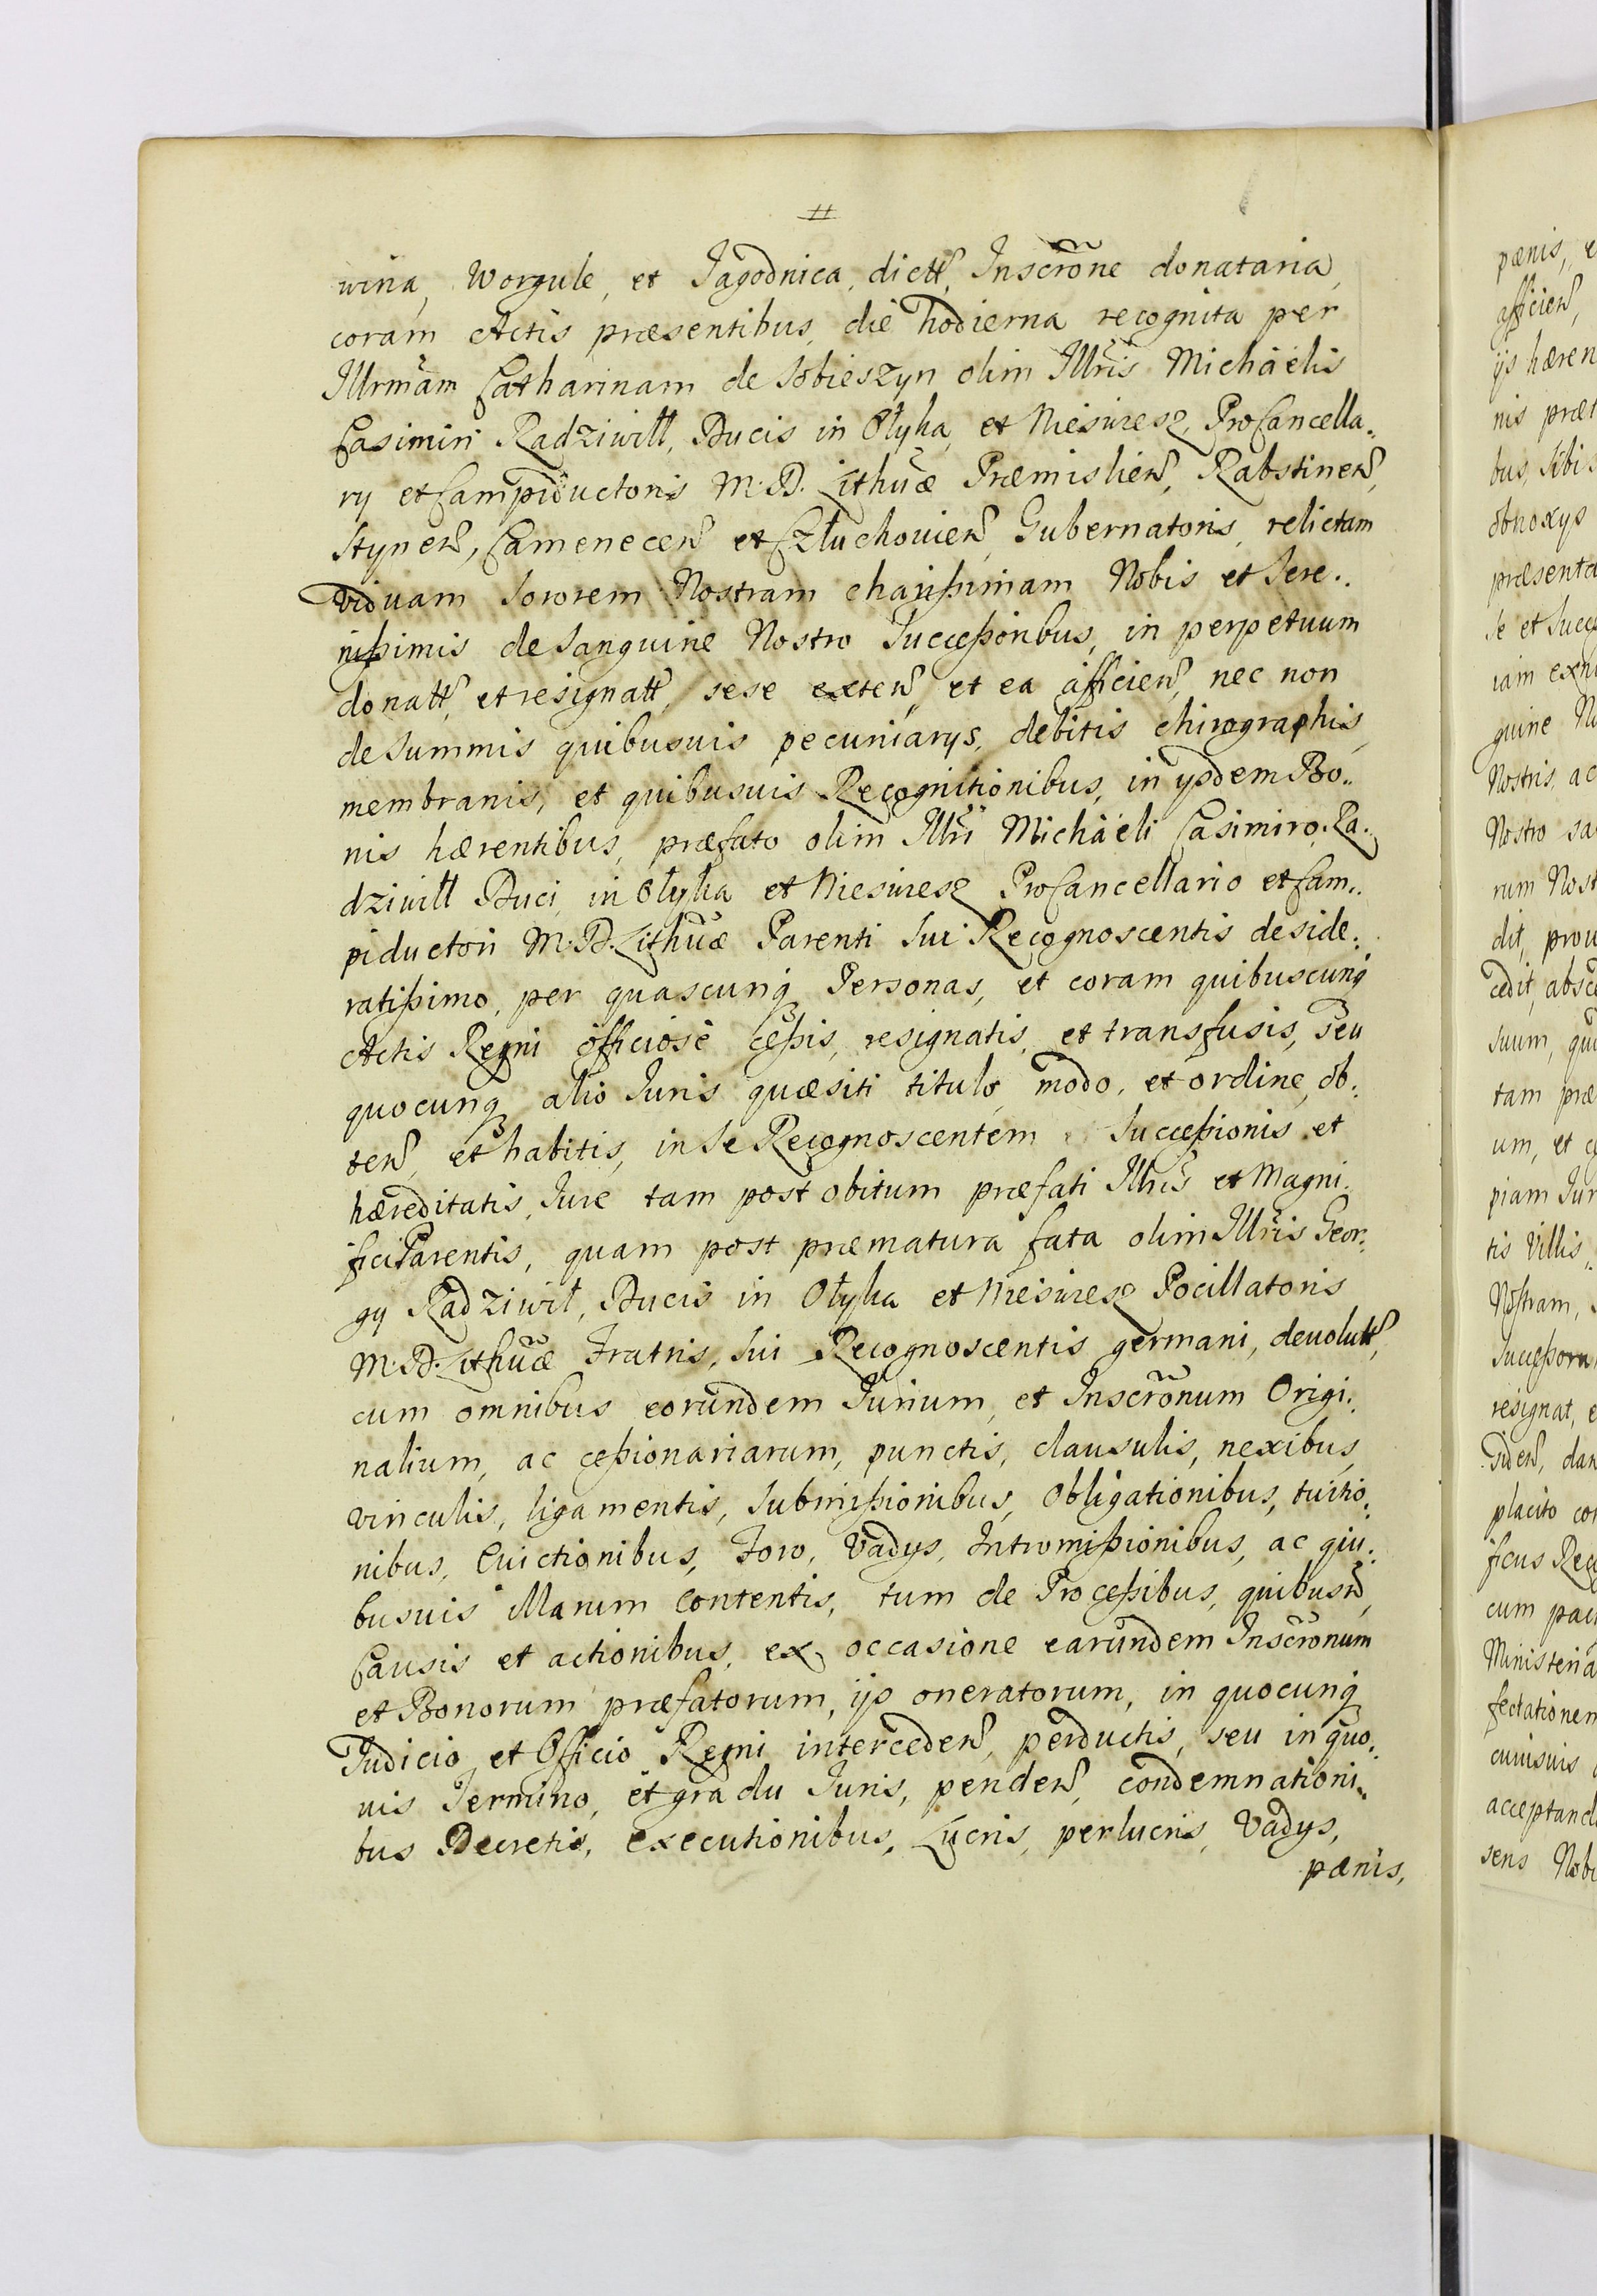 wina, Worgule, et Jagodnica, dictt, Inscrõne donataria,
coram Actis præsentibus, die hodierna recognita per
Illrmam Catharinam de Sobieszyn olim Illris Michaelis
Casimiri Radziwiłł, Ducis in Ołyka, et Nieswiesz, ProCancella„
rij et Campiductoris M. D. Lithuæ Præmislien, Rabstinen,
Stynen, Camenecen et Człuchouien, Gubernatoris, relictam
viduam Sororem Nostram charißimam Nobis et Sere„
nißimis de Sanguine Nostro Succeßoribus, in perpetuum
donatt, et resignatt, sese exten, et ea afficien, nec non
de Summis quibusuis pecuniarys, debitis chirographis,
membranis, et quibusuis Recognitionibus, in ysdem Bo„
nis hærentibus, præfato olim Illri Michaeli Casimiro Ra„
dziwiłł Duci, in Ołyka et Nieswiesz ProCancellario et Cam„
piductori M. D. Lithuæ Parenti Sui Recognoscentis deside„
ratißimo, per quascunq Personas, et coram quibuscunq
Actis Regni officiose ceßis, resignatis, et transfusis, seu
quocunq alio Iuris quæsiti titulo, modo, et ordine, ob„
ten, et habitis, in Se Recognoscentem Succeßionis et
hæreditatis, Iure tam post obitum præfati Illris et Magni„
fici Parentis, quam post præmatura fata olim Illris Geor„
gy Radziwił, Ducis in Ołyka et Nieswiesz Pocillatoris
M. D. Lithuæ Fratris, Sui Recognoscentis germani, deuolutt,
cum omnibus eorundem Iurium, et Inscrõnum Origi„
nalium, ac ceßionariarum, punctis, clausulis, nexibus,
vinculis, ligamentis, Submißionibus, Obligationibus, tuitio„
nibus, Euictionibus, Foro, Vadys, Intromißionibus, ac qui„
busuis illarum Contentis, tum de Proceßibus, quibusu,
Causis et actionibus, ex occasione earundem Inscrõnum
et Bonorum præfatorum, ijs oneratorum, in quocunq
Judicio, et Officio Regni interceden, perductis, seu in quo„
uis Termino, et gradu Iuris, penden, condemnationi„
bus Decretis, executionibus, Lucris, perlucris, Vadys,
pænis,